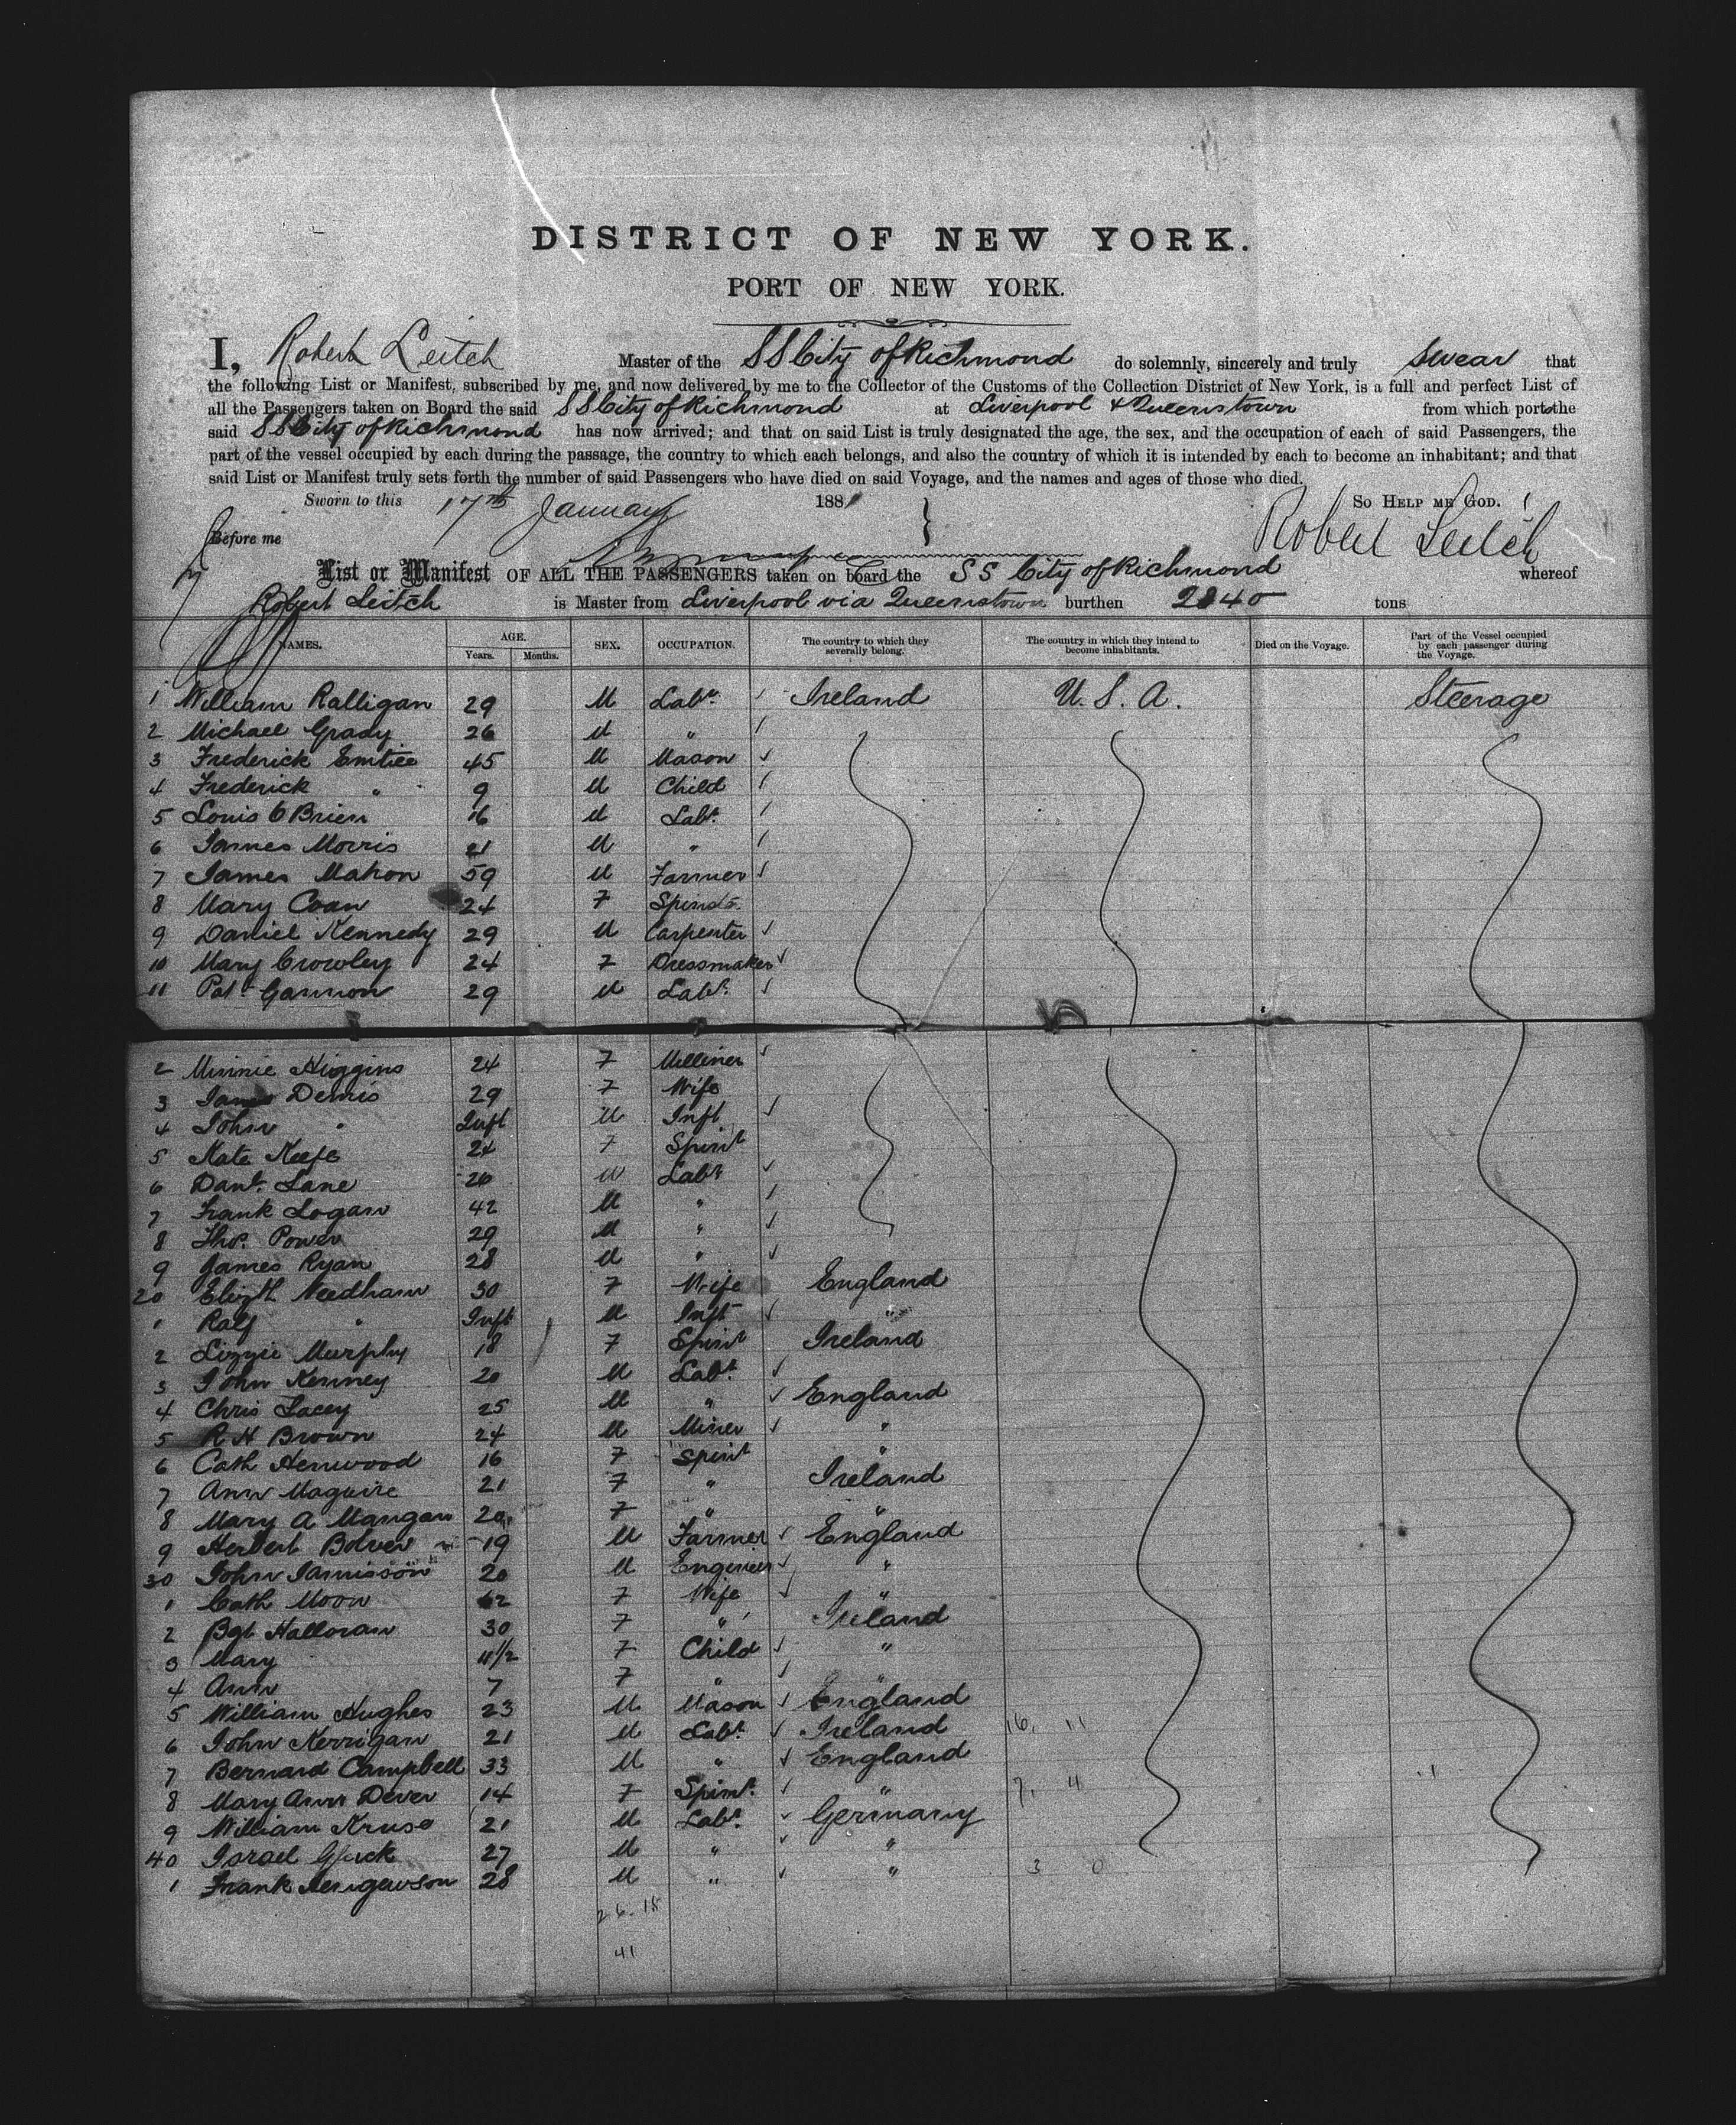 DISTRICT OF NEW YORK.
PORT OF NEW YORK.
I, Robert Leitch Master of the SS City of Richmond do solemnly, sincerely and truly swear that
the following List or Manifest, subscribed by me, and now delivered by me to the Collector of the Customs of the Collection District of New York, is a full and perfect List of
all the Passengers taken on Board the said SS City of Richmond at Liverpool & Queenstown from which ports the
said SS City of Richmond has now arrived; and that on said List is truly designated the age, the sex, and the occupation of each of said Passengers, the
part of the vessel occupied by each during the passage, the country to which each belongs, and also the country of which it is intended by each to become an inhabitant; and that
said List or Manifest truly sets forth the number of said Passengers who have died on said Voyage, and the names and ages of those who died.
Sworn to this 17th January 1881 So HELP ME GOD.
Before me Robert Leitch
List or Manifest OF ALL THE PASSENGERS taken on board the SS City of Richmond whereof
Robert Leitch is Master from Liverpool via Queenstown burthen 2840 tons
NAMES. AGE. Years. Months. SEX. OCCUPATION. The country to which they severally belong. The country in which they intend to become inhabitants. Died on the Voyage. Part of the Vessel occupied by each passenger during the Voyage.
1 William Ralligan 29 M Labr. Ireland U. S. A. Steerage
2 Michael Grady 26 M "
3 Frederick Emtice 45 M Mason
4 Frederick " 9 M Child
5 Louis O Brien 16 M Labr.
6 James Morris 21 M "
7 James Mahon 59 M Farmer
8 Mary Coan 24 F Spinstr.
9 Daniel Kennedy 29 M Carpenter
10 Mary Crowley 24 F Dressmaker
11 Patk Gannon 29 M Labr.
2 Minnie Higgins 24 F Milliner
3 Dennis 29 F Wife
4 John " Inft M Inft
5 Kate Keefe 24 F Spinr
6 Danl. Lane 26 M Labr
7 Frank Logan 42 M "
8 Thos. Power 29 M "
9 James Ryan 28 M "
20 Elizth Needham 30 F Wife England
1 Ralf " Inft M Inft "
2 Lizzie Murphy 18 F Spinr Ireland
3 John Kenney 20 M Labr.
4 Chris Lacey 25 M " England
5 R H Brown 24 M Miner "
6 Cath Henwood 16 F Spinr "
7 Ann Maguire 21 F " Ireland
8 Mary A Mangan 20 F " "
9 Herbert Bolver 19 M Farmer England
30 John Jamisson 20 M Engineer "
1 Cath Moon 62 F Wife "
2 Bgt Halloran 30 F " Ireland
3 Mary 11/2 F Child "
4 Ann 7 F " "
5 William Hughes 23 M Mason England
6 John Kerrigan 21 M Labr. Ireland 16. 11
7 Bernard Campbell 33 M " England
8 Mary Ann Dever 14 F Spinr. " 7. 4
9 William Kruse 21 M Labr. Germany
40 Israel Gluck 27 M " "
1 Frank 28 M " " 3 0
26. 15
41